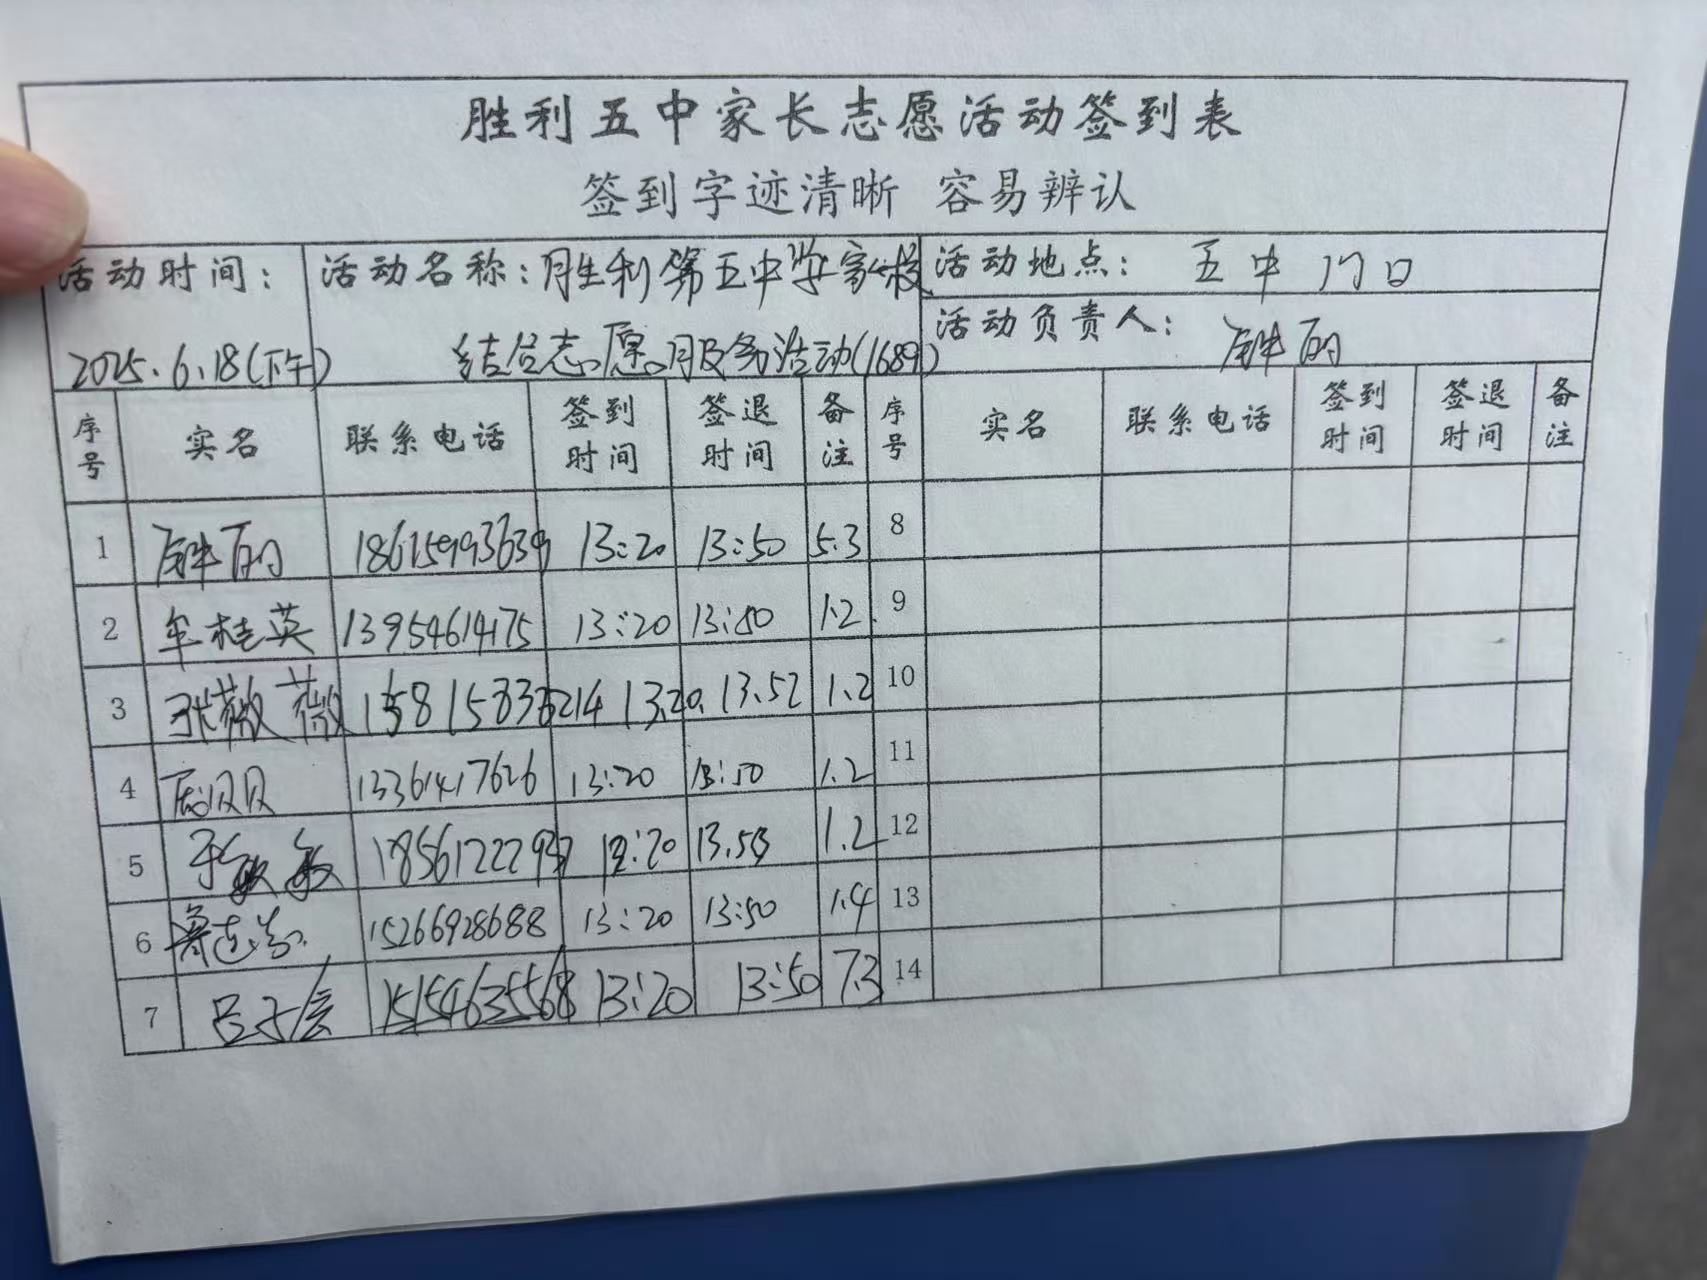 胜利五中家长志愿活动签到表
签到字迹清晰 容易辨认
活动时间： 2025.6.18(下午)
活动名称：胜利第五中学家校
结合志愿服务活动(1689)
活动地点： 五中门口
活动负责人：
序号 实名 联系电话 签到时间 签退时间 备注 序号 实名 联系电话 签到时间 签退时间 备注
1 18615993639 13:20 13:50 5.3 8
2 牟桂英 13954614175 13:20 13:50 1.2 9
3 张薇薇 13:20 13.52 1.2 10
4 贝贝 13361417626 13:20 13:50 1.2 11
5 于敏敏 13.53 1.2 12
6 15266928688 13:20 13:50 1.4 13
7 吕 15154635568 13:20 13:50 7.3 14